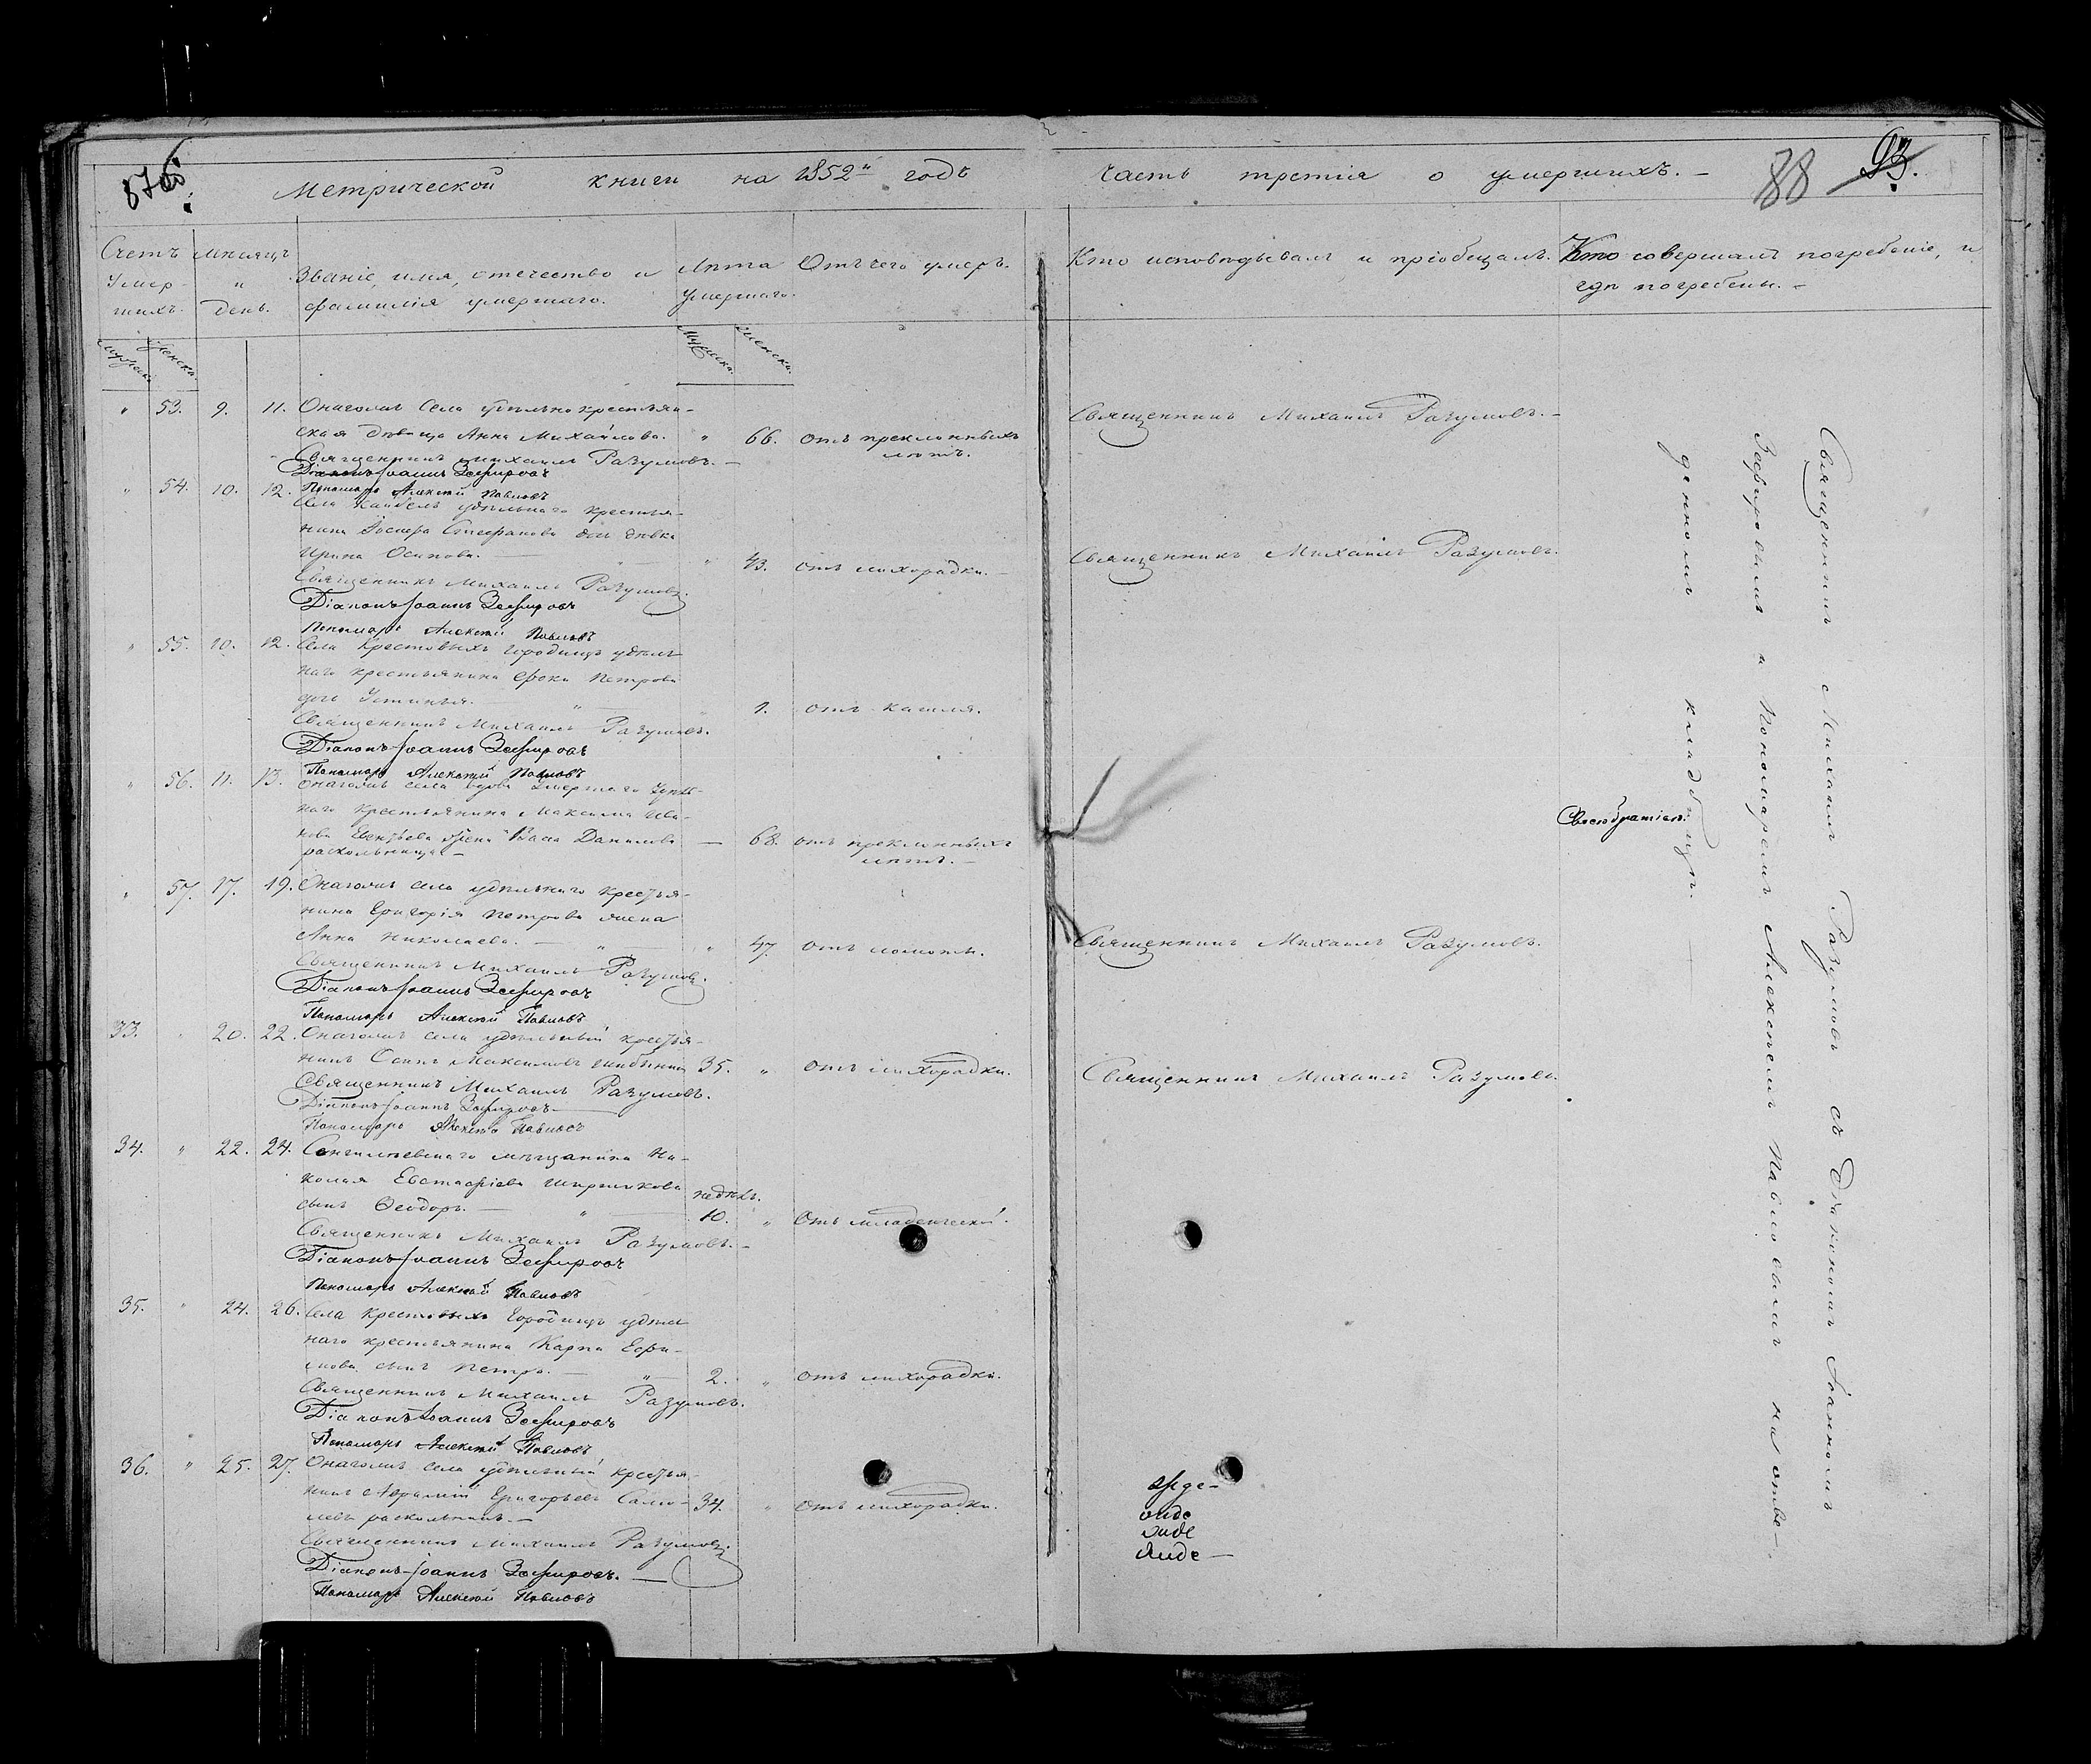 Метрической книги на 1852й годъ
часть третія о умершихъ.
88
93.
Счетъ Умер-шихъ.
Мѣсяцъ и день.
Званіе, имя, отечество и
фамилія умершаго.
Лѣта Умершаго.
Отъ чего умеръ.
Кто исповѣдывалъ и пріобщалъ.
Кто совершалъ погребеніе, и
гдѣ погребены.
Мужеска.
Женска.
Мужеска.
Женска.
" 53. 9. 11. Онагожъ села удѣльная крестьян-
ская дѣвица Анна Михайлова. " 66. отъ преклонныхъ
лѣтъ.
Священникъ Михаилъ Разумовъ.
Священникъ Михаилъ Разумовъ.
Діаконъ Іоаннъ Зефировъ
Пономарь Алексѣй Павловъ
" 54. 10. 12. Села удѣльнаго крестья-
нина Іосифа Стефанова дочь дѣвка
Ирина Осипова. " 43. отъ лихорадки.
Священникъ Михаилъ Разумовъ.
Священникъ Михаилъ Разумовъ.
Діаконъ Іоаннъ Зефировъ
Пономарь Алексѣй Павловъ
" 55. 10. 12. Села Крестовыхъ Городищъ удѣль-
наго крестьянина Фоки Петрова
дочь Устинья. " 1. отъ кашля.
Священникъ Михаилъ Разумовъ.
Діаконъ Іоаннъ Зефировъ
Пономарь Алексѣй Павловъ
" 56. 11. 13. Онагожъ села вдова умершаго удѣль-
наго крестьянина Максима Ива-
нова жена Васса Данилова — 68. отъ преклонныхъ
раскольница — лѣтъ.
" 57. 17. 19. Онагожъ села удѣльнаго крестья-
нина Григорія Петрова жена
Анна Николаева. " 47. отъ ломоты.
Священникъ Михаилъ Разумовъ.
Священникъ Михаилъ Разумовъ.
Діаконъ Іоаннъ Зефировъ
Пономарь Алексѣй Павловъ
33. " 20. 22. Онагожъ села удѣльный крестья-
нинъ Осипъ Максимовъ 35. " отъ лихорадки.
Священникъ Михаилъ Разумовъ.
Священникъ Михаилъ Разумовъ.
Діаконъ Іоаннъ Зефировъ
Пономарь Алексѣй Павловъ
34. " 22. 24. Сенгилеевскаго мѣщанина Ни-
колая Евстафіева Ширшикова недѣль.
сынъ Ѳеодоръ. 10. " Отъ младенческой.
Священникъ Михаилъ Разумовъ.
Діаконъ Іоаннъ Зефировъ
Пономарь Алексѣй Павловъ
35. " 24. 26. Села Крестовыхъ Городищъ удѣль
наго крестьянина Карпа Ефи-
мова сынъ Петръ. 2. " отъ лихорадки.
Священникъ Михаилъ Разумовъ.
Діаконъ Іоаннъ Зефировъ
Пономарь Алексѣй Павловъ
36. " 25. 27. Онагожъ села удѣльный крестья-
нинъ Аврамій Григорьевъ 34. " отъ лихорадки.
раскольникъ.
Священникъ Михаилъ Разумовъ.
Діаконъ Іоаннъ Зефировъ.
Пономарь Алексѣй Павловъ
Священникъ Михаилъ Разумовъ съ Діакономъ Іоанномъ
Зефировымъ и Пономаремъ Алексѣемъ Павловымъ на отве-
денномъ кладбищѣ.